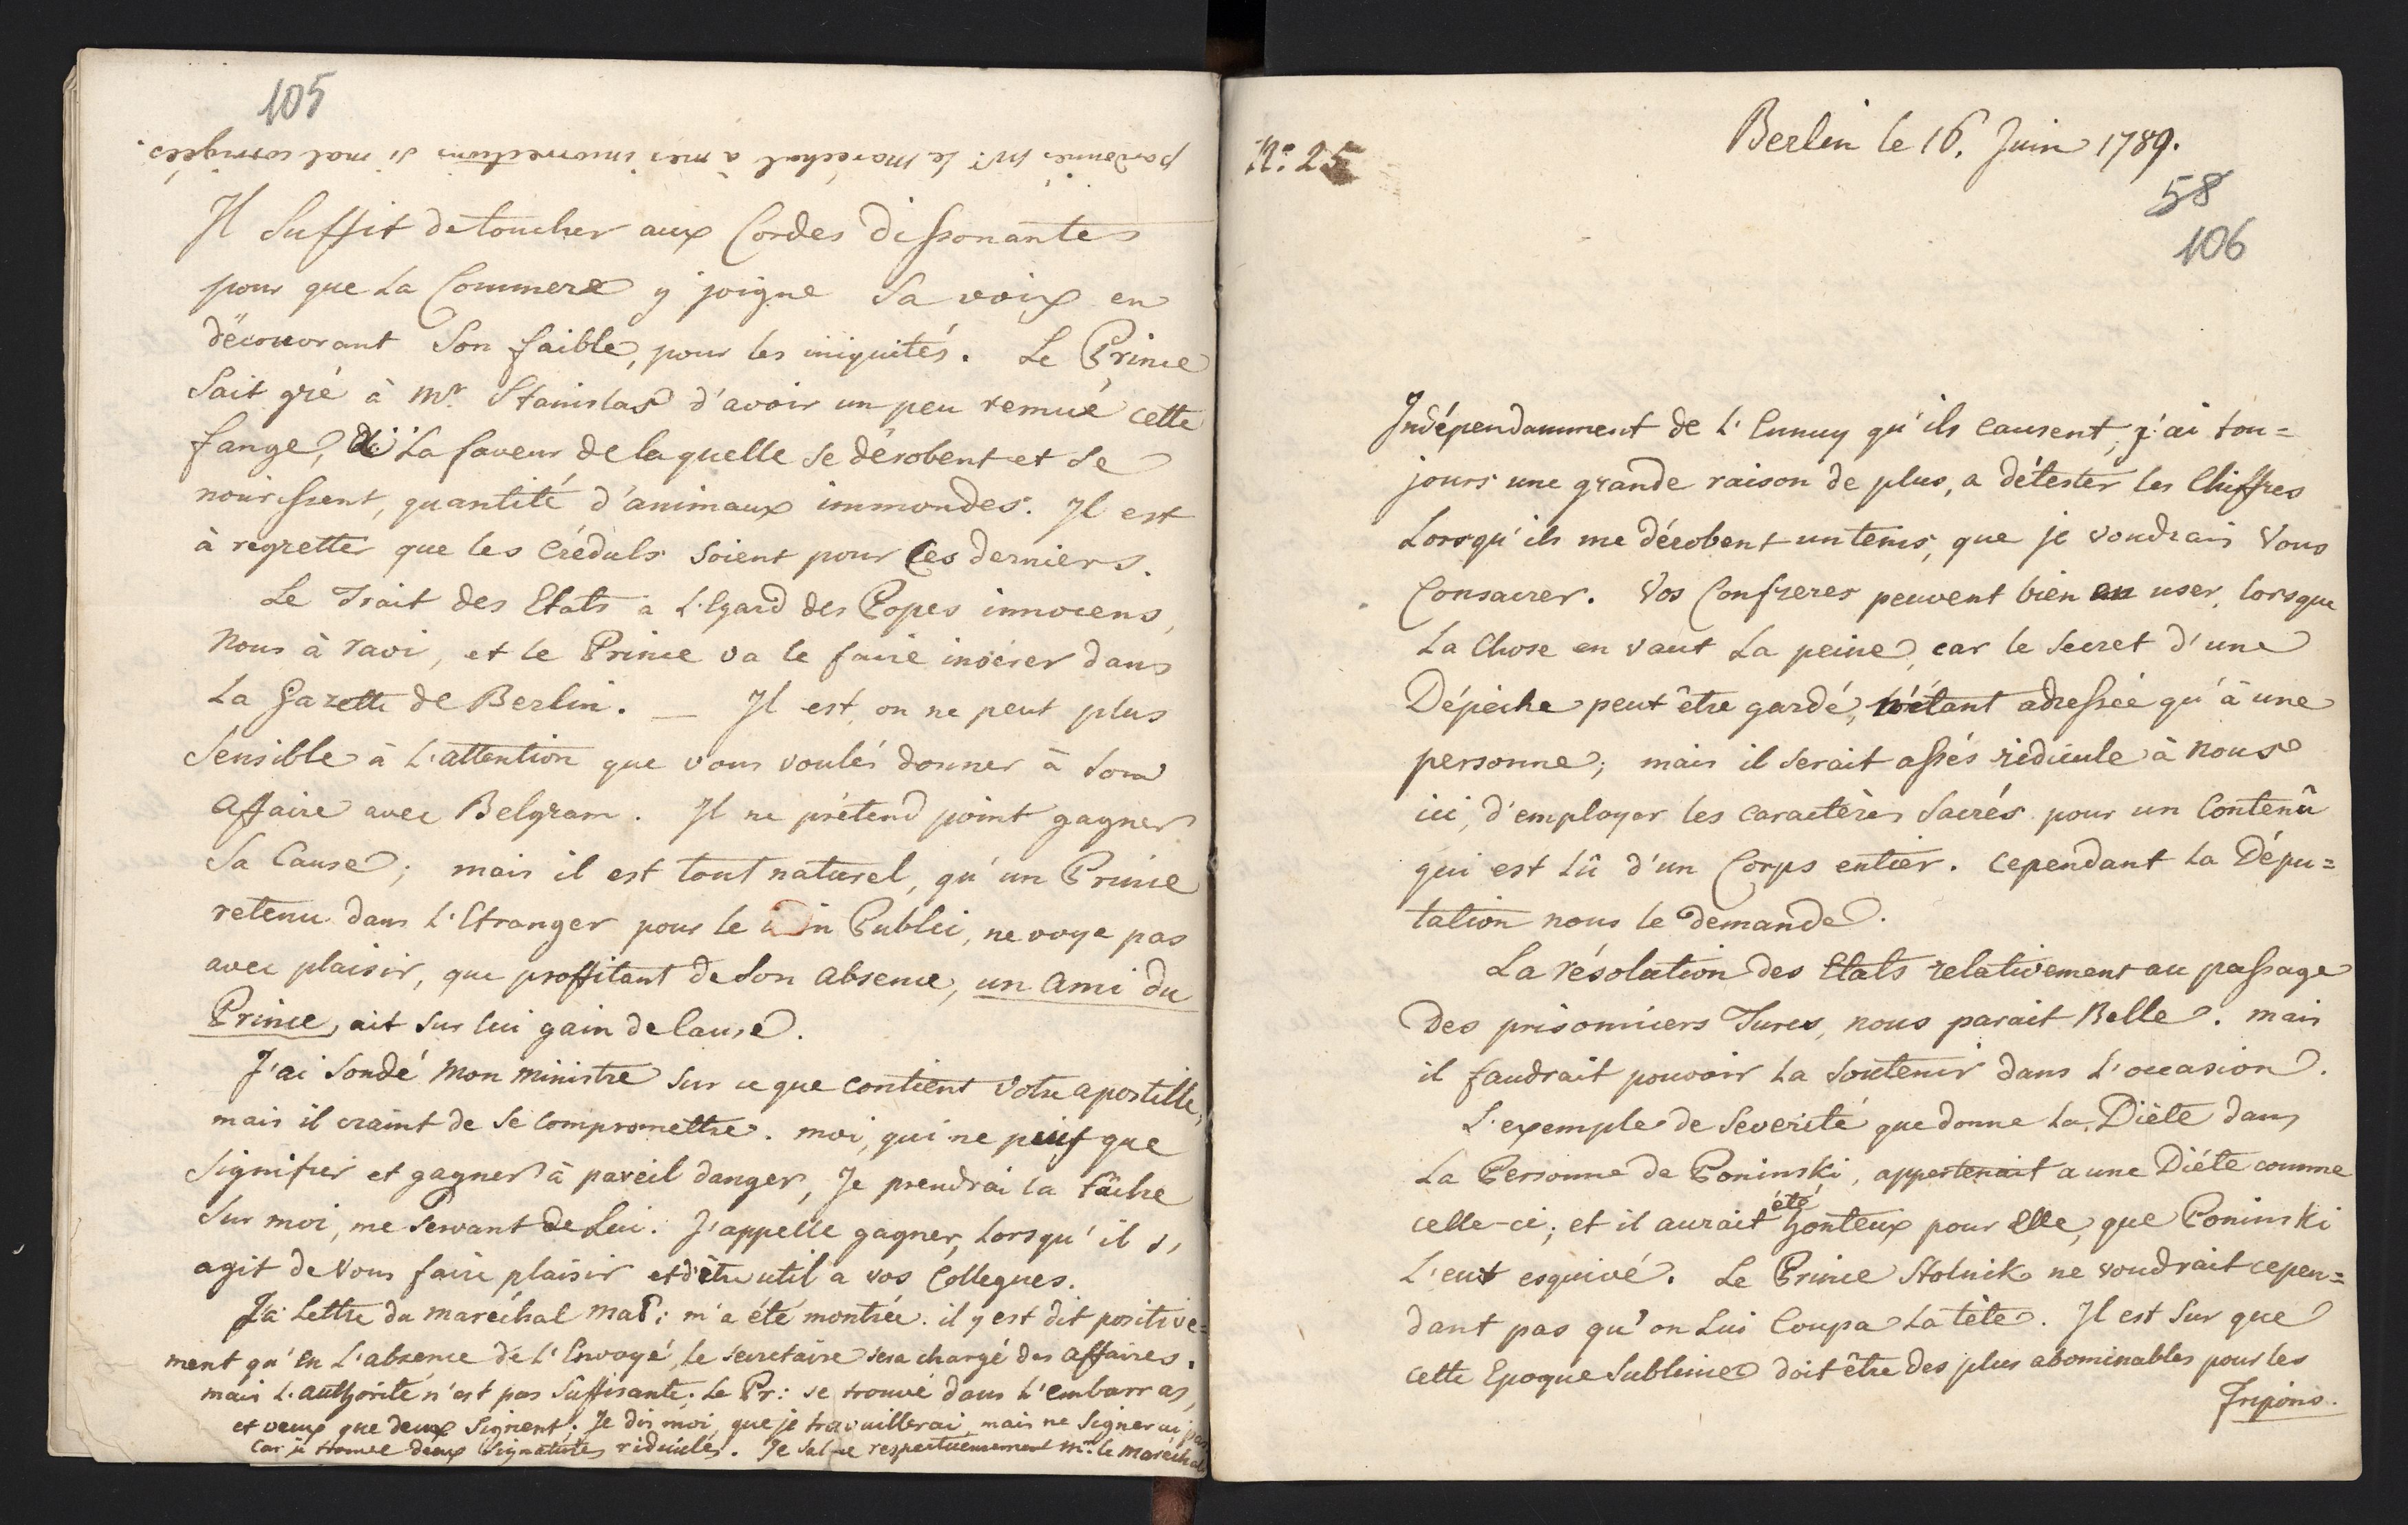 105
pardonnés Mr: le Maréchal à mes incorrections si mal corrigées.
Il Suffit de toucher aux Cordes dissonantes
pour que La Commere y joigne Sa voix en
découvrant Son faible, pour les iniquités. Le Prince
Sait gré à Mr. Stanislas d'avoir un peu remué cette
fange, à La faveur de laquelle se dérobent et se
nourissent, quantité d'animaux immondes. Il est
à regretter que les Créduls soient pour ces derniers.
Le Trait des Etats a L'Egard des Popes innocens,
Nous à ravi, et le Prince va le faire insérer dans
La Gazette de Berlin. — Il est, on ne peut plus
Sensible à L'attention que vous voulés donner à Son
Affaire avec Belgram. Il ne prétend point gagner
Sa Cause; mais il est tout naturel, qu'un Prince
retenu dans L'Etranger pour le Publci, ne voye pas
avec plaisir, que proffitant de Son Absence, un Ami du
Prince, ait sur lui gain de Cause.
J'ai Sondé Mon Ministre Sur ce que contient Votre apostille,
mais il craint de se compromettre. Moi, qui ne peus que
Signifier et gagner à pareil danger, Je prendrai la tâche
Sur moi, me Servant de Lui. J'appelle gagner, Lorsqu'il s,
agit de Vous faire plaisir et d'être util a vos Collegues.
La Lettre du maréchal Mał: m'a été montrée. il y est dit positive=
ment qu'en L'absence de L'Envoyé, le Secretaire sera chargé des Affaires.
mais L'authorité n'est pas suffisante. Le Pr: se trouve dans L'embarras,
et veux que deux Signent. Je dis moi, que je travaillerai, mais ne Signerai pas
Car je trouve deux Signatures ridicules. Je Salue respectueusement Mr. le Maréchal
No: 25
Berlin le 16. Juin 1789.
58
106
Indépendamment de L'Ennuy qu'ils causent, j'ai tou=
jours une grande raison de plus, a détester les Chiffres
Lorsqu'ils me dérobent un tems, que je voudrais Vous
Consacrer. Vos Confreres peuvent bien en user, lorsque
La Chose en vaut La peine, car le Secret d'une
Dépêche peut être gardé, n'étant adressée qu'à une
personne; mais il serait assés ridicule à Nous
ici, d'employer les caractères Sacrés pour un Contenû
qui est Lû d'un Corps entier. Cependant la Dépu=
tation nous le demande.
La résolution des Etats relativement au passage
Des prisonniers Turcs, nous parait Belle. mais
il faudrait pouvoir la soutenir dans L'occasion.
L'exemple de Severité que donne La Diète dans
La Personne de Poninski, appertenait a une Diéte comme
celle-ci; et il aurait été honteux pour Elle, que Poninski
L'eut esquivé. Le Prince Stolnik ne voudrait cepen=
dant pas qu'on Lui Coupa La tête. Il est Sur que
cette Epoque Sublime doit être des plus abominables pour les
fripons.